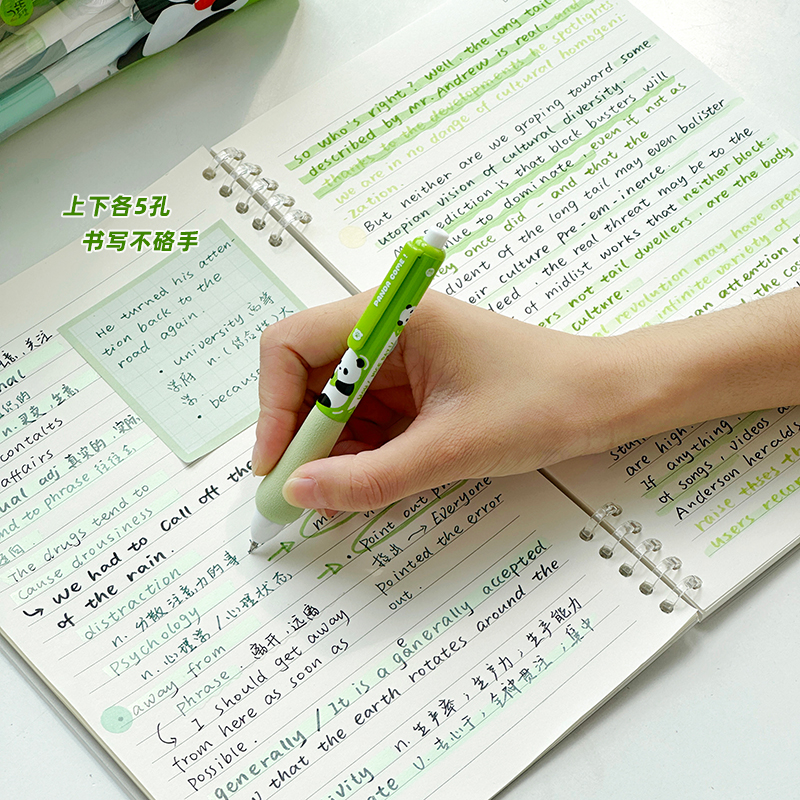 上下各5孔
书写不硌手
PANDA COME!
He turned his atten-
tion back to the
road again.
• university 高等
学府 n.
• because
contalts
affairs
adj 真实的,实际
to phrase 往往...
The drugs tend to
cause drousiness
↳ we had to call off the
of the rain.
distraction
n. 分散注意力的事
Psychology
n. 心理学/心理状态
away from
Phrase. 离开,远离
↳ I should get away
from here as soon as
Possible.
generally / It is a generally accepted
that the earth rotates around the
n. 生产率,生产力,生产能力
v. 专心于,全神贯注,集中
• Point out
指出 → Everyone
Pointed the error
out.
so who's right? Well. the long tail
described by Mr. Andrew is real, and
thanks to the developments he spotlights
we are in no dange of cultural homogeni-
zation.
But neither are we groping toward some
utopian vision of cultural diversity.
prediction is that block busters will
to dominate, even if not as
once did. and that the
advent of the long tail may even bolister
their culture pre-em-inence.
the real threat may be to the
of midlist works that neither block.
not tail dwellers. are the body
culture.
revolution may have open
infinite variety of
an attention
are high.
If anything.
of songs, videos a
Anderson heralds
raise
users